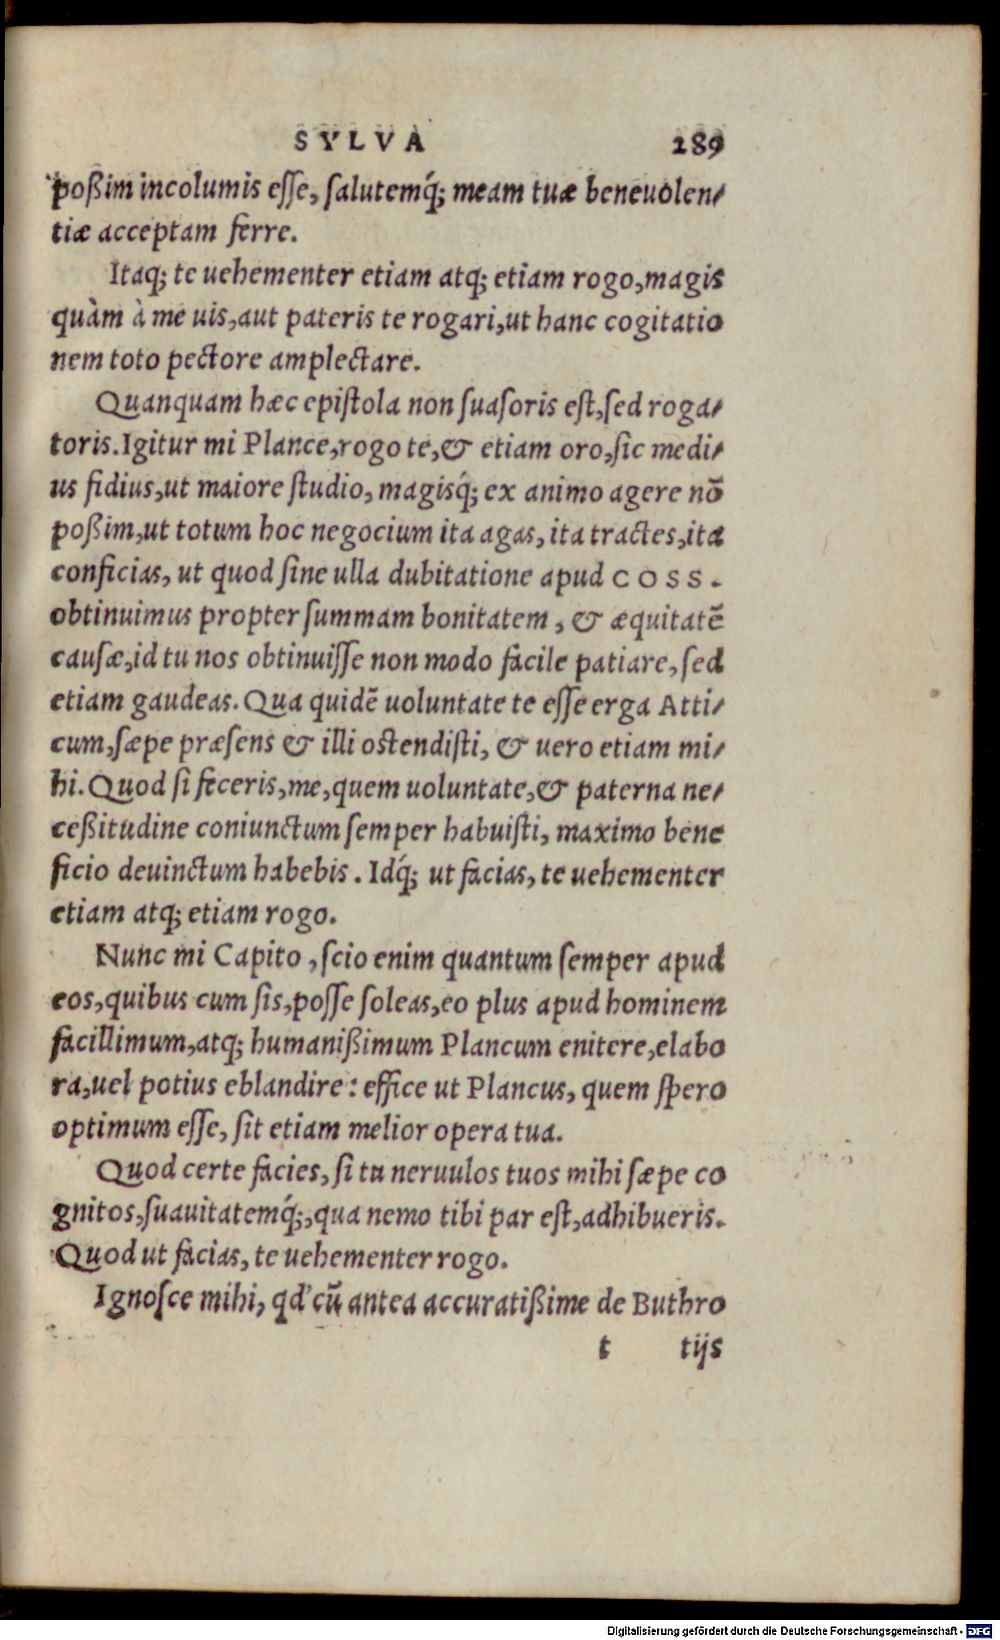 SYLVA 289
poßim incolumis eſſe, ſalutemq́; meam tuæ beneuolen⸗
tiæ acceptam ferre.
Itaq; te uehementer etiam atq; etiam rogo, magis
quàm à me uis, aut pateris te rogari, ut hanc cogitatio
nem toto pectore amplectare.
Quanquam hæc epiſtola non ſuaſoris eſt, ſed roga⸗
toris. Igitur mi Plance, rogo te, & etiam oro, ſic medi⸗
us fidius, ut maiore ſtudio, magisq́; ex animo agere nō
poßim, ut totum hoc negocium ita agas, ita tractes, ita
conficias, ut quod ſine ulla dubitatione apud COSS.
obtinuimus propter ſummam bonitatem, & æquitatē
cauſæ, id tu nos obtinuiſſe non modo facile patiare, ſed
etiam gaudeas. Qua quidē uoluntate te eſſe erga Atti⸗
cum, ſæpe præſens & illi oſtendiſti, & uero etiam mi⸗
hi. Quod ſi feceris, me, quem uoluntate, & paterna ne⸗
ceßitudine coniunctum ſemper habuiſti, maximo bene
ficio deuinctum habebis. Idq́; ut facias, te uehementer
etiam atq; etiam rogo.
Nunc mi Capito, ſcio enim quantum ſemper apud
eos, quibus cum ſis, poſſe ſoleas, eo plus apud hominem
facillimum, atq; humanißimum Plancum enitere, elabo
ra, uel potius eblandire: effice ut Plancus, quem ſpero
optimum eſſe, ſit etiam melior opera tua.
Quod certe facies, ſi tu neruulos tuos mihi ſæpe co
gnitos, ſuauitatemq́;, qua nemo tibi par eſt, adhibueris.
Quod ut facias, te uehementer rogo.
Ignoſce mihi, qd' cū antea accuratißime de Buthro
t tijs
Digitalisierung gefördert durch die Deutsche Forschungsgemeinschaft - DFG